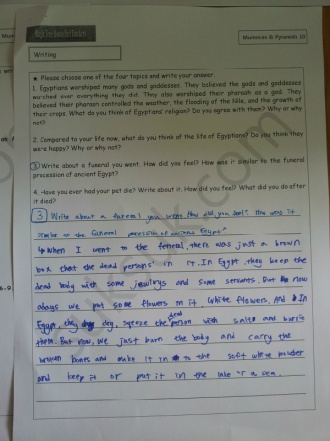 Magic Tree House Book Club
Mummies & Pyramids 10
Writing
★ Please choose one of the four topics and write your answer.
1. Egyptians worshiped many gods and goddesses. They believed the gods and goddesses
watched over everything they did. They also worshiped their pharaoh as a god. They
believed their pharaoh controlled the weather, the flooding of the Nile, and the growth of
their crops. What do you think of Egyptians' religion? Do you agree with them? Why or why
not?
2. Compared to your life now, what do you think of the life of Egyptians? Do you think they
were happy? Why or why not?
3. Write about a funeral you went. How did you feel? How was it similar to the funeral
procession of ancient Egypt?
4. Have you ever had your pet die? Write about it. How did you feel? What did you do after
it died?
3 Write about a funeral you went. How did you feel? How was it
similar to the funeral procession of ancient Egypt?
↳ When I went to the feneral, there was just a brown
box that the dead persons in it. In Egypt, they keep the
dead body with some jewlings and some servants. But now
adays we put some flowers in it. White flowers. And In
Egypt, they dry, sqeeze the dead person with salt and burie
them. But now, we just burn the body and carry the
broken bones and make it in to the soft white powder
and keep it or put it in the lake or a sea.